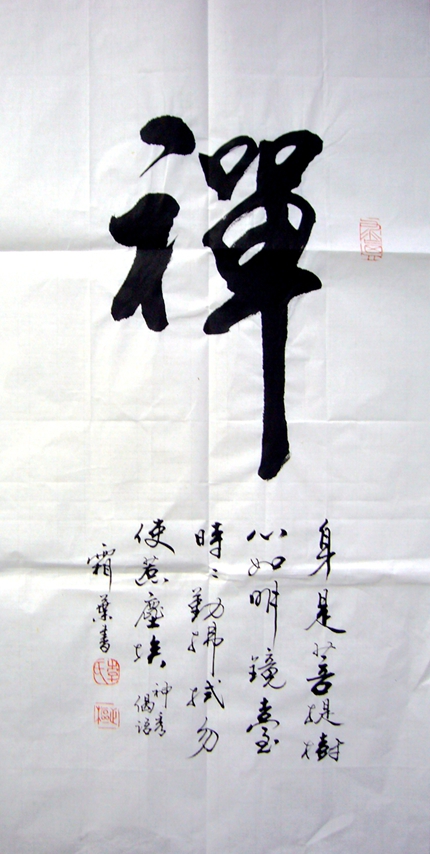 禪
身是菩提樹
心如明鏡臺
時〻勤拂拭勿
使惹塵埃 神秀偈語
霜葉書